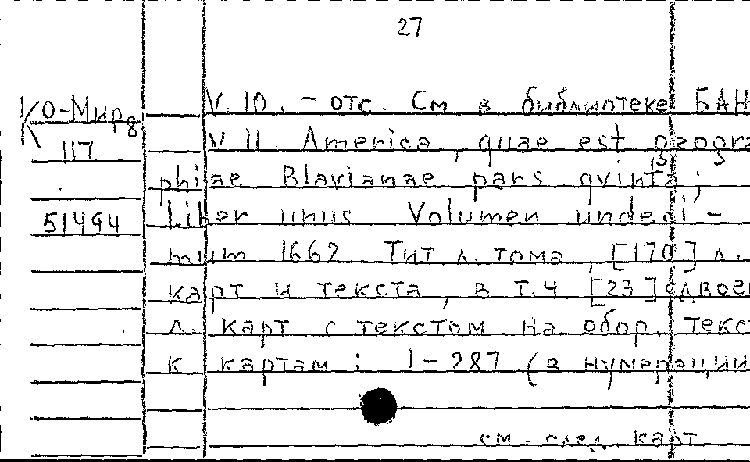 27
КО-Мир8
117
51494
V. 10. - отс. См в библиотеке БАН
V. 11 America, quae est geogra
phiae Blavianae pars qvinta;
Liber unus Volumen undeci-
mum 1662 Тит л. тома, [170] л.
карт и текста, в т.ч [23] сдвоен
л. карт с текстом на обор. текст
к картам: 1-287 (в нумерации
см. след. карт